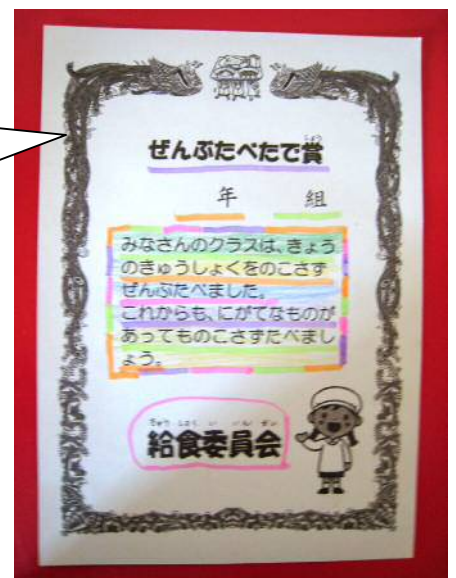 ぜんぶたべたで賞
しょう
年 組
みなさんのクラスは、きょう
のきゅうしょくをのこさず
ぜんぶたべました。
これからも、にがてなものが
あってものこさずたべまし
ょう。
きゅうしょくいいんかい
給食委員会